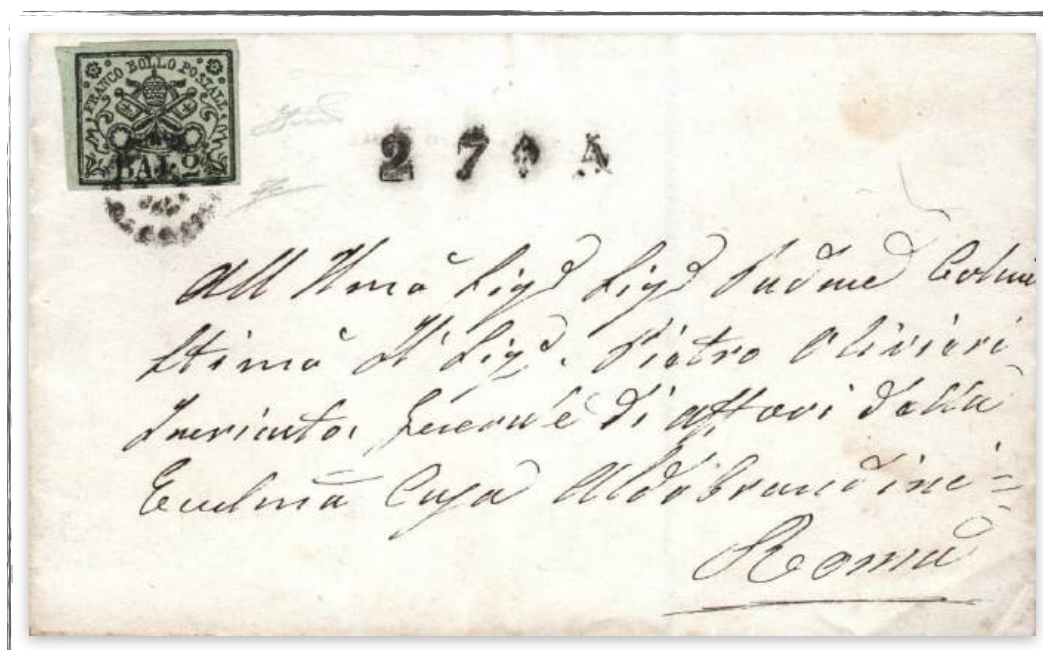 FRANCO BOLLO POSTALE
BAJ. 2
2 7 A
All Illmo Sigr Sigr Padrne Colmo
Stimo Il Sigr. Pietro Olivieri
Incricato. Generle di affari della
Eccelma Casa Aldobrandini=
Roma